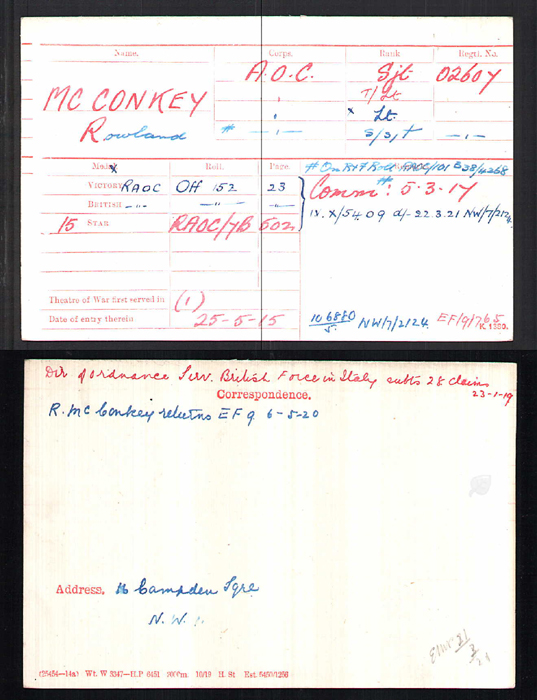 Name. Corps. Rank Regtl. No.
MC CONKEY A.O.C. Sjt 02607
T/Lt
Rowland x Lt.
# — " — S/S/T — " —
Medal x Roll. Page.
Victory RAOC Off 152 23
British —"— —"— —"—
15 Star RAOC/7B 502
# On R&F Roll RAOC/101 B38/4268
Comm#: 5.3.17
IV. X/5409 d/- 22.3.21 NW/7/2124.
Theatre of War first served in (1)
Date of entry therein 25-5-15
106880/5. NW/7/2124. EF/9/765
K. 1380.
Dir of ordnance Serv. British Force in Italy subts 28 claims
23-1-19
Correspondence.
R. McConkey returns EF9 6-5-20
Address. 16 Campden Sqre
N.W.
(25454—14a) Wt. W 3347—H.P. 6451 200m. 10/19 H. St